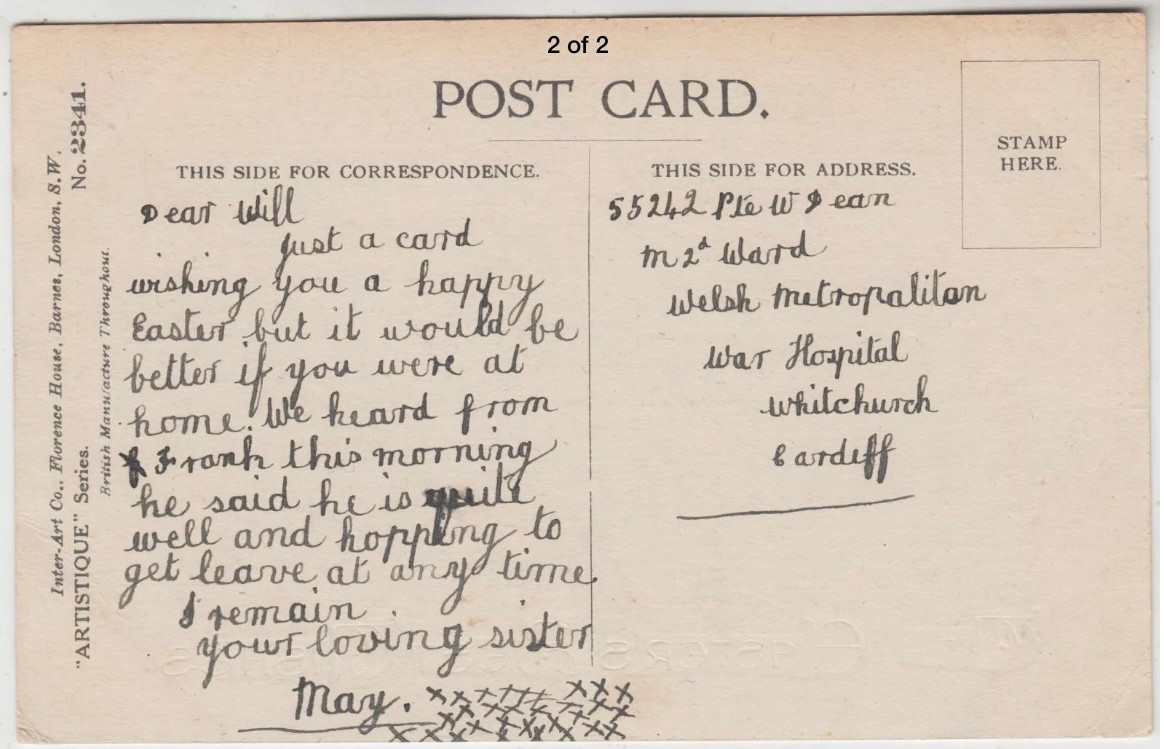 2 of 2
POST CARD.
STAMP
HERE.
THIS SIDE FOR CORRESPONDENCE.
Dear Will
Just a card
wishing you a happy
Easter but it would be
better if you were at
home. We heard from
Frank this morning
he said he is quite
well and hopping to
get leave at any time.
I remain.
your loving sister
May. xxxxxxxxx
THIS SIDE FOR ADDRESS.
55242 Pte W Dean
M 2d Ward
Welsh Metropalitan
War Hospital
Whitchurch
Cardiff
Inter-Art Co., Florence House, Barnes, London, S.W.
"ARTISTIQUE" Series. No. 2341.
British Manufacture Throughout.